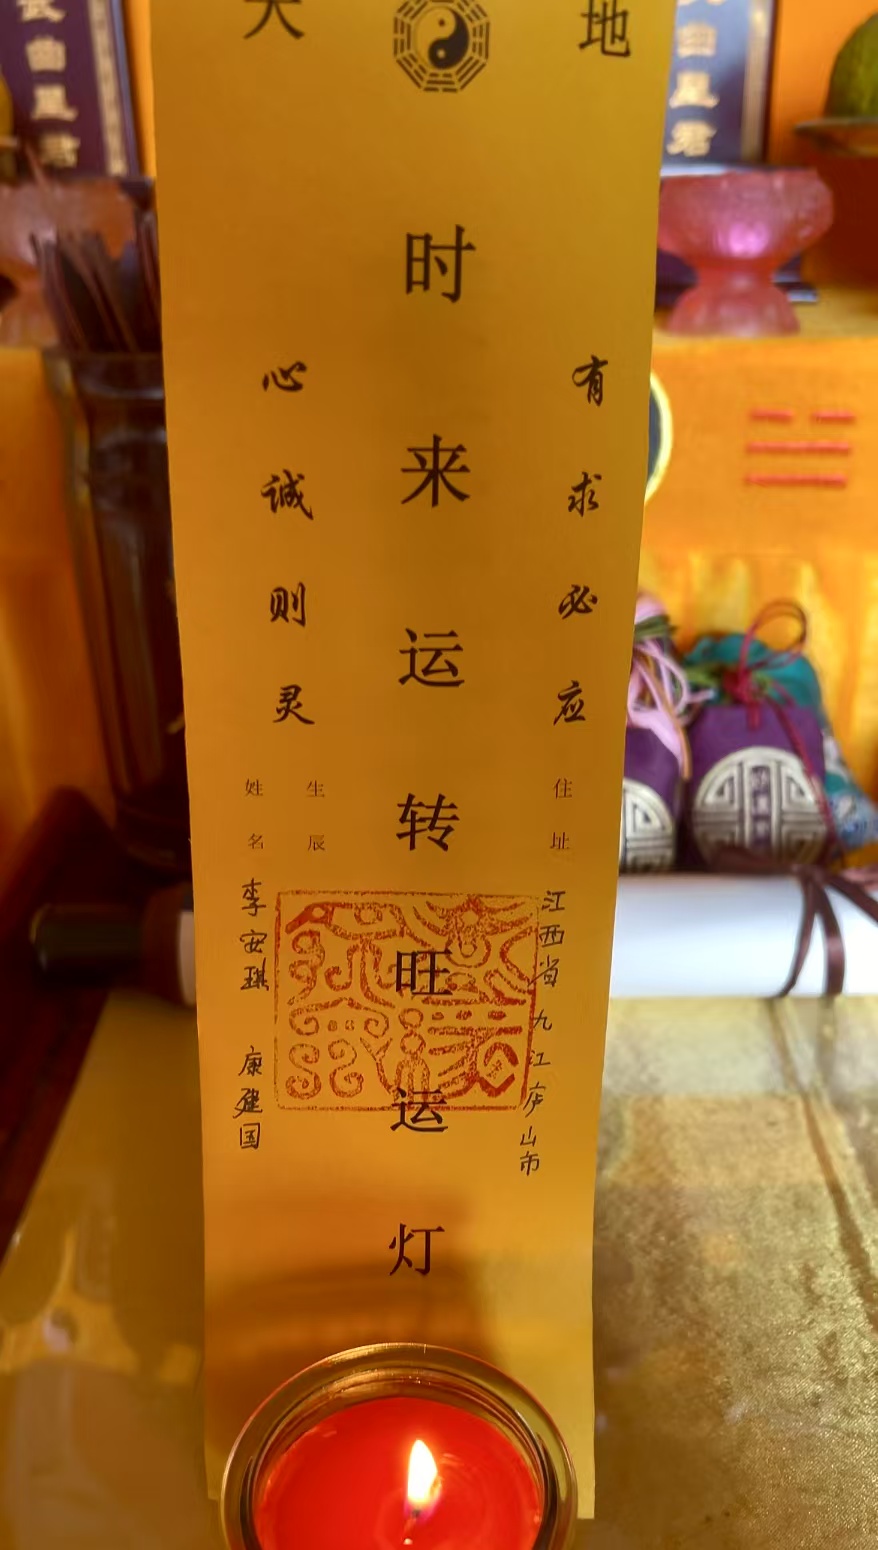 天
地
时来运转旺运灯
有求必应
心诚则灵
住址
江西省九江庐山市
生辰
姓名
李安琪
康建国
武曲星君
曲星君